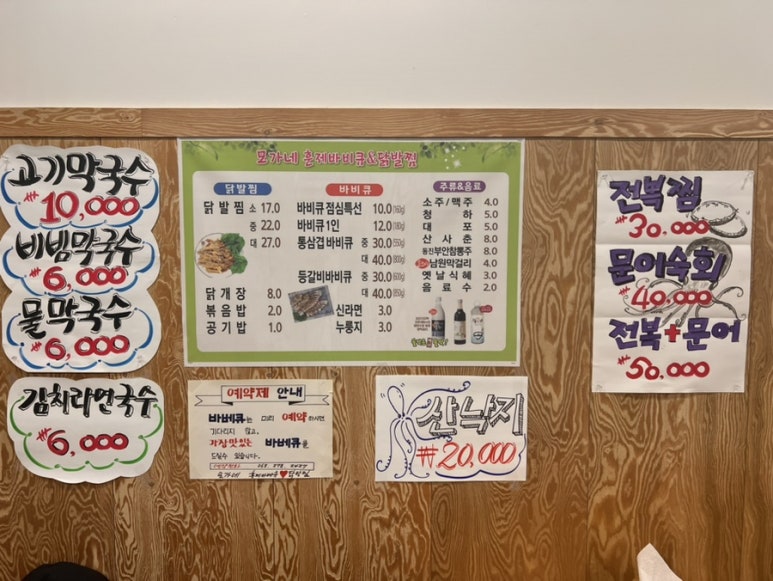 고기막국수
₩10,000
비빔막국수
₩6,000
물막국수
₩6,000
김치라면국수
₩6,000
모가네 훈제바비큐&닭발찜
닭발찜
닭발찜 소 17.0
중 22.0
대 27.0
닭개장 8.0
볶음밥 2.0
공기밥 1.0
바비큐
바비큐점심특선 10.0(160g)
바비큐1인 12.0(180g)
통삼겹바비큐 중 30.0(550g)
대 40.0(800g)
등갈비바비큐 중 30.0(600g)
대 40.0(850g)
신라면 3.0
누룽지 3.0
주류&음료
소주/맥주 4.0
청하 5.0
대포 5.0
산사춘 8.0
부안참뽕주 8.0
남원막걸리 4.0
옛날식혜 3.0
음료수 2.0
예약제 안내
바베큐는 미리 예약하시면
기다리지 않고,
가장맛있는 바베큐를
드실수 있습니다.
모가네 훈제바베큐♥닭발찜
산낙지
₩20,000
전복찜
₩30,000
문어숙회
₩40,000
전복+문어
₩50,000